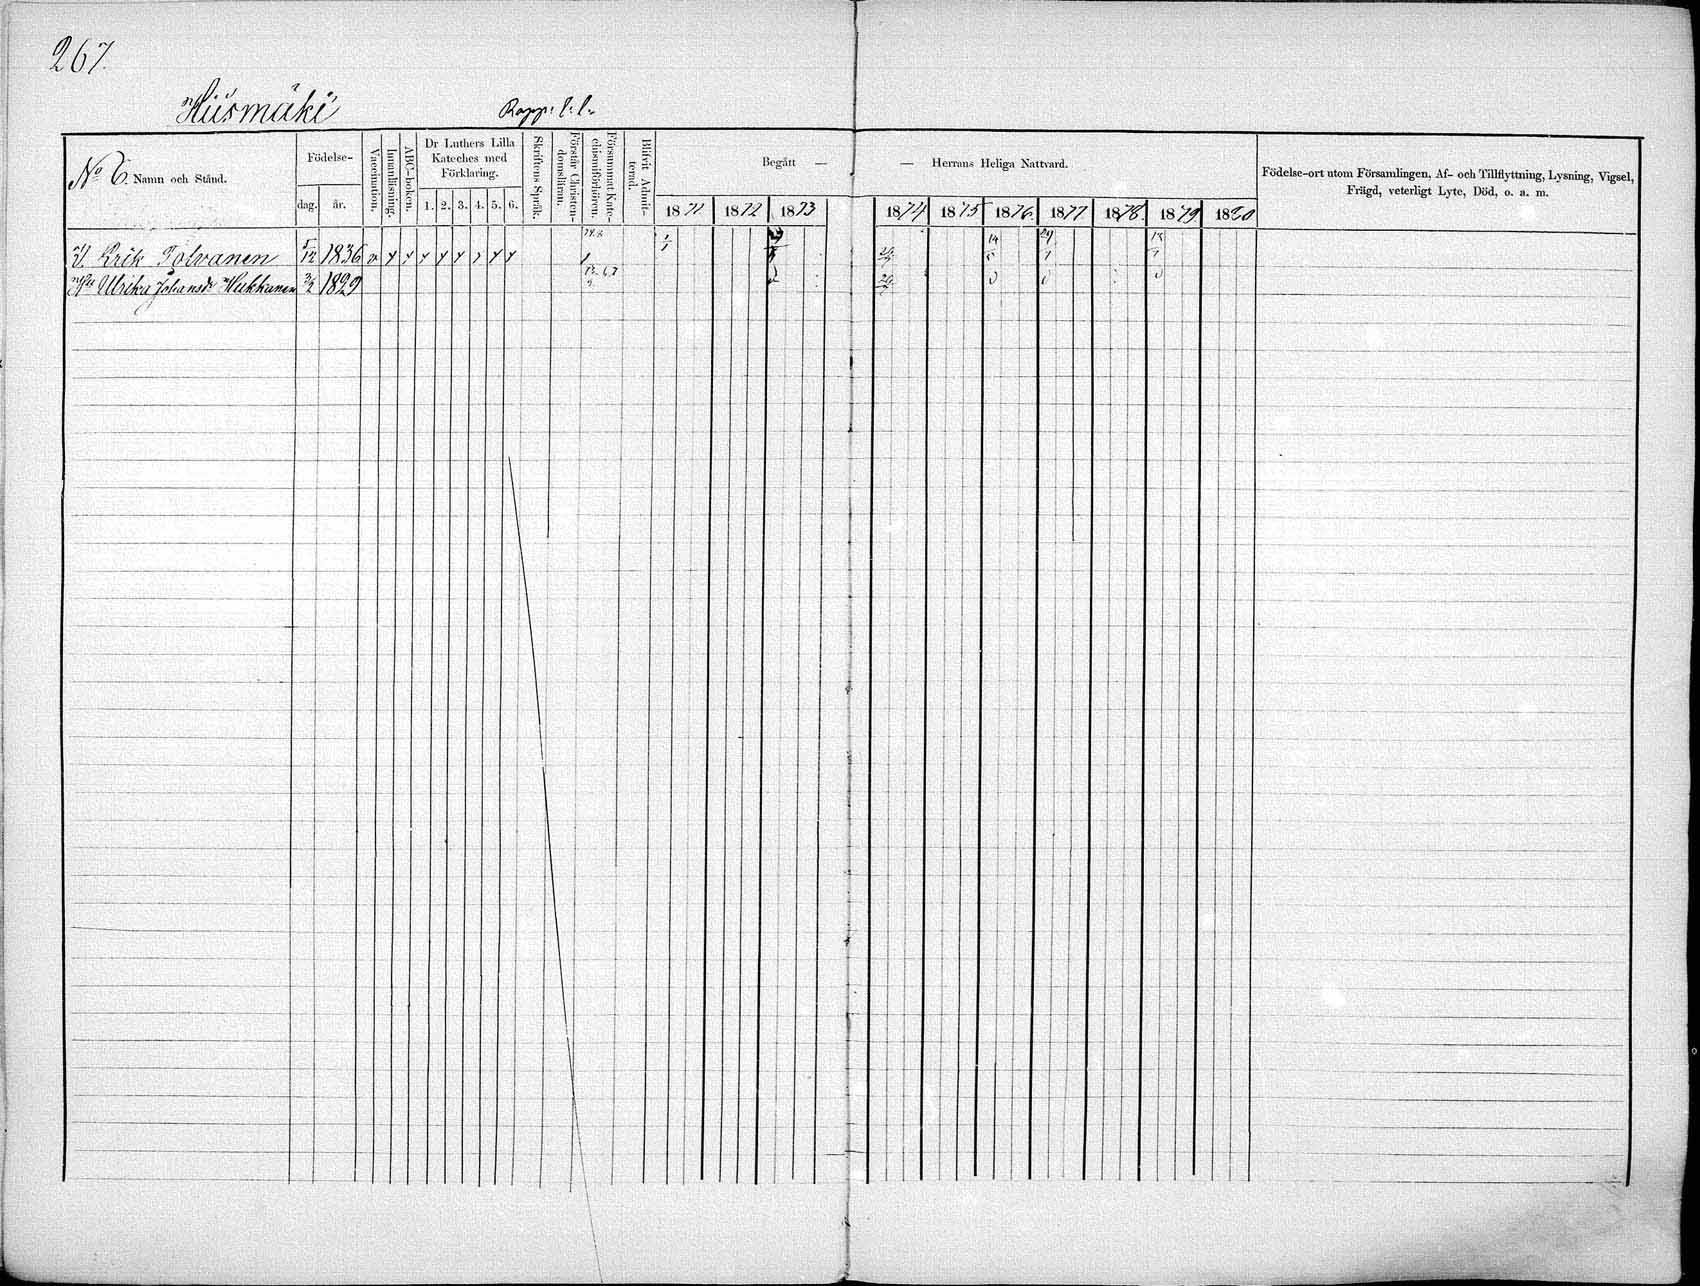 267.
Hiismäki
No 6. Namn och Stånd.
Födelse-
dag. år.
Vaccination.
Innanläsning.
ABC-boken.
Dr Luthers Lilla
Kateches med
Förklaring.
1. 2. 3. 4. 5. 6.
Skriftens Språk.
Förstår Christen-
domsläran.
Försummat Kate-
chismiförhören.
Blifvit Admit-
terad.
Begått — — Herrans Heliga Nattvard.
1871 1872 1873 1874 1875 1876. 1877 1878. 1879 1880
Födelse-ort utom Församlingen, Af- och Tillflyttning, Lysning, Vigsel,
Frägd, veterligt Lyte, Död, o. a. m.
Erik Tolvanen 5/12 1836
Ulrika Johansdr Hukkanen 3/2 1829